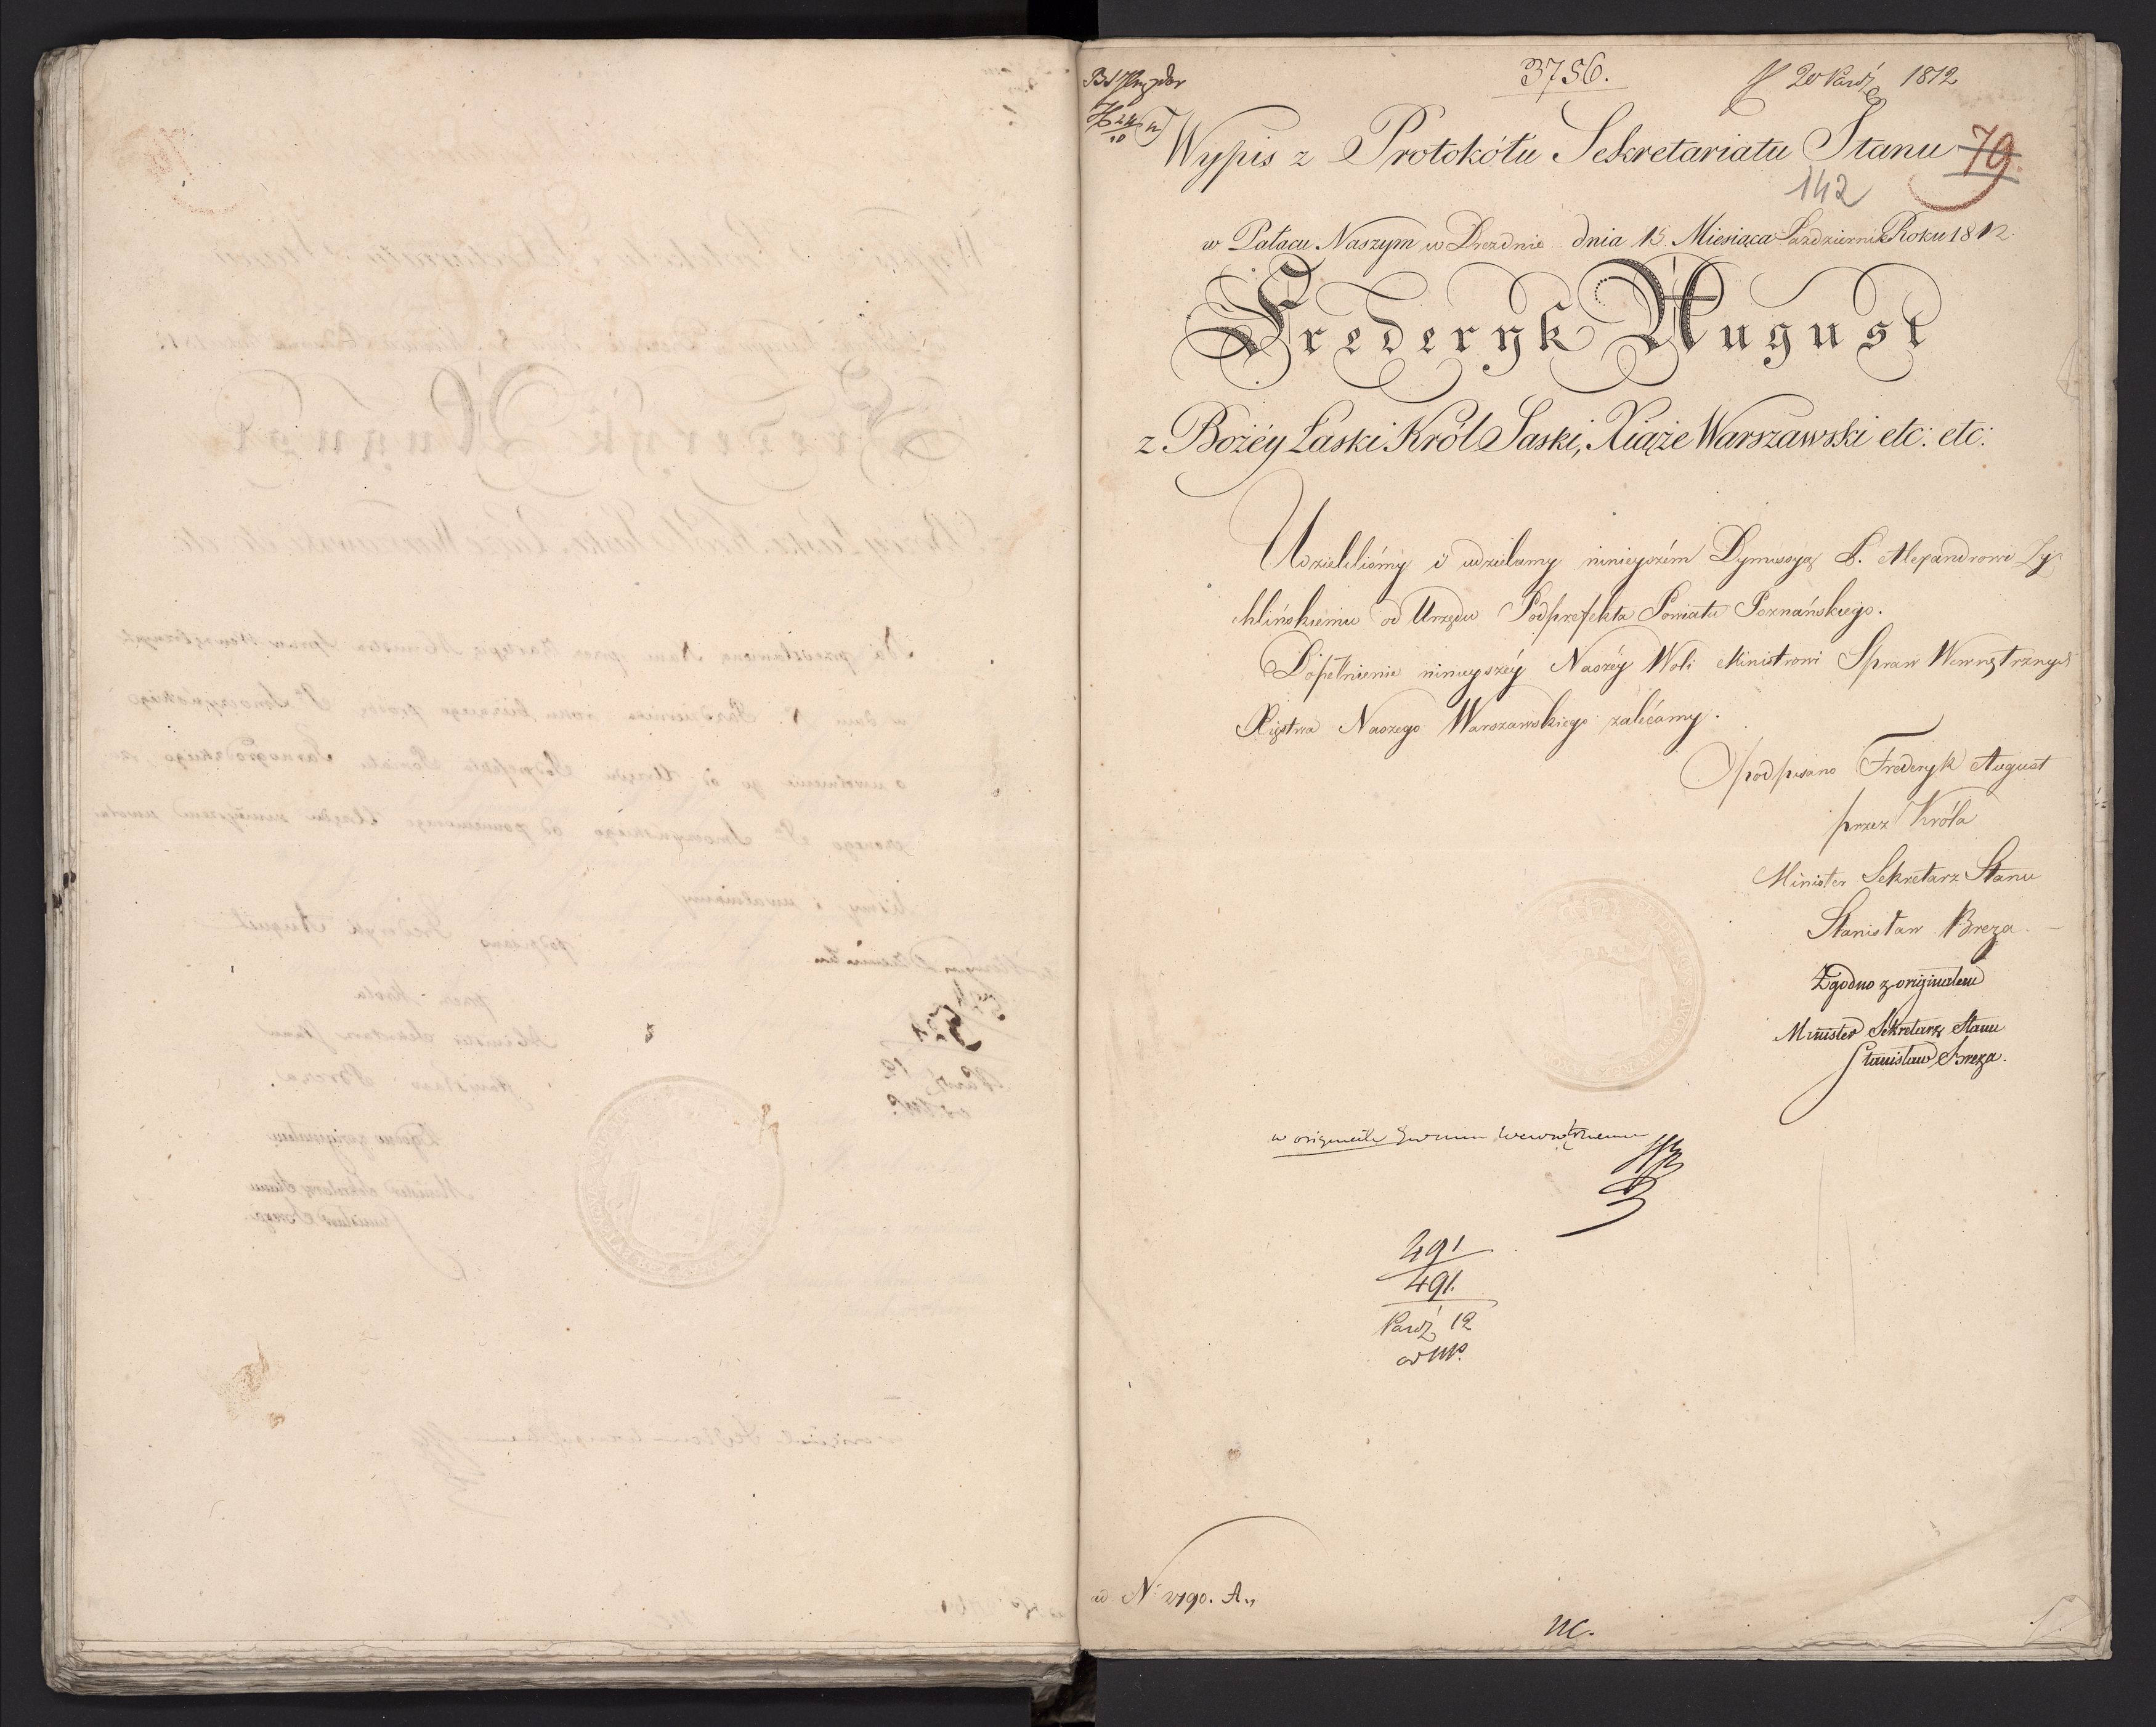 3756.
20 Paźdź 1812
Wypis z Protokółu Sekretariatu Stanu 79.
142
w Pałacu Naszym w Dreznie dnia 15 Miesiąca Października Roku 1812.
Frederyk August
z Bożéy Łaski Król Saski, Xiąże Warszawski etc: etc:
Udzieliliśmy i udzielamy ninieyszém Dymissyą P. Alexandrowi Zy
chlińskiemu od Urzędu Podprefekta Powiatu Poznańskiego.
Dopełnienie ninieyszéy Naszéy Woli Ministrowi Spraw Wewnętrznych
Xięstwa Naszego Warszawskiego zalécamy.
podpisano Frederyk August
przez Króla
Minister Sekretarz Stanu
Stanisław Breza.
Zgodno z originałem
Minister Sekretarz Stanu
Stanisław Breza.
w originale
491
491.
Paźdź 12
ad N: 2790. A.,